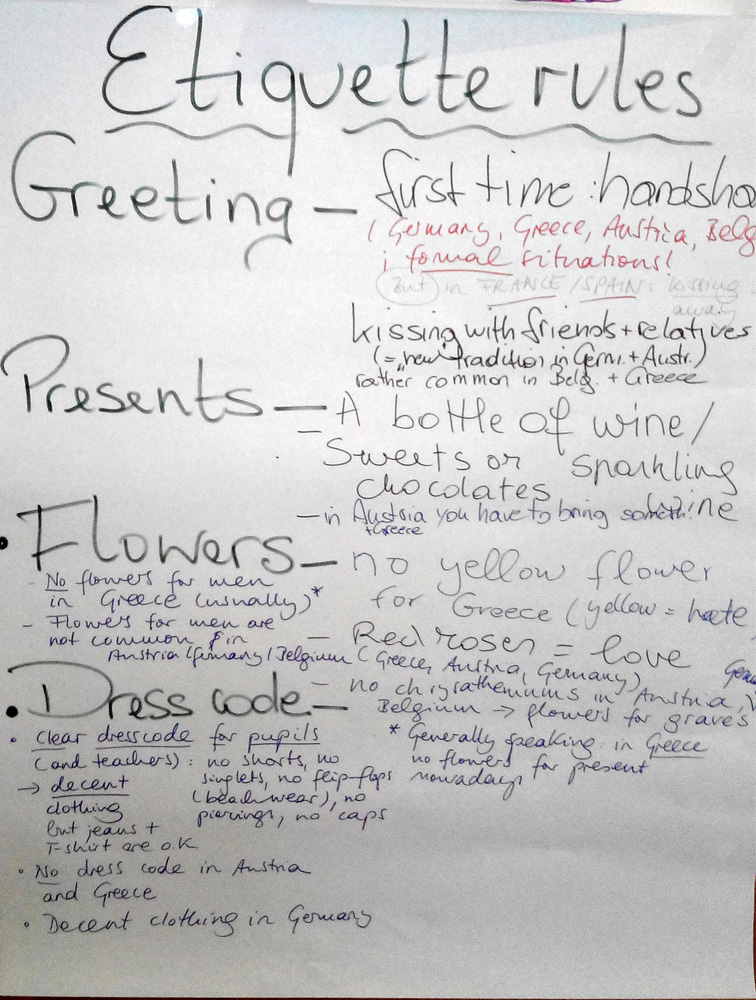 Etiquette rules
Greeting – first time: handsha
(Germany, Greece, Austria, Belg
i formal situations!
But in FRANCE/SPAIN: kissing
away
kissing with friends + relatives
(= "new" tradition in Germ. + Austr.)
rather common in Belg. + Greece
Presents – A bottle of wine/
Sweets or sparkling
chocolates wine
– in Austria you have to bring someth.!
+ Greece
• Flowers – no yellow flower
for Greece (yellow = hate
- No flowers for men
in Greece (usually)*
- Flowers for men are
not common in
Austria/Germany/Belgium
– Red roses = love
(Greece, Austria, Germany)
– no chrysathemiums in Austria,
Belgium → flowers for graves
* Generally speaking: in Greece
no flowers for present
nowadays
• Dress code –
• clear dresscode for pupils
(and teachers): no shorts, no
singlets, no flip-flops
(beachwear), no
piercings, no caps
→ decent
clothing
but jeans +
T-shirt are o.K.
• No dress code in Austria
and Greece
• Decent clothing in Germany